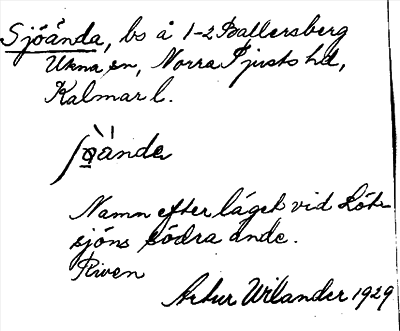 Sjöända, bs å 1-2 Ballersberg
Ukna sn, Norra Tjusts hd,
Kalmar l.
Namn efter läget vid Löt-
sjöns södra ände.
Riven
Artur Wilander 1929